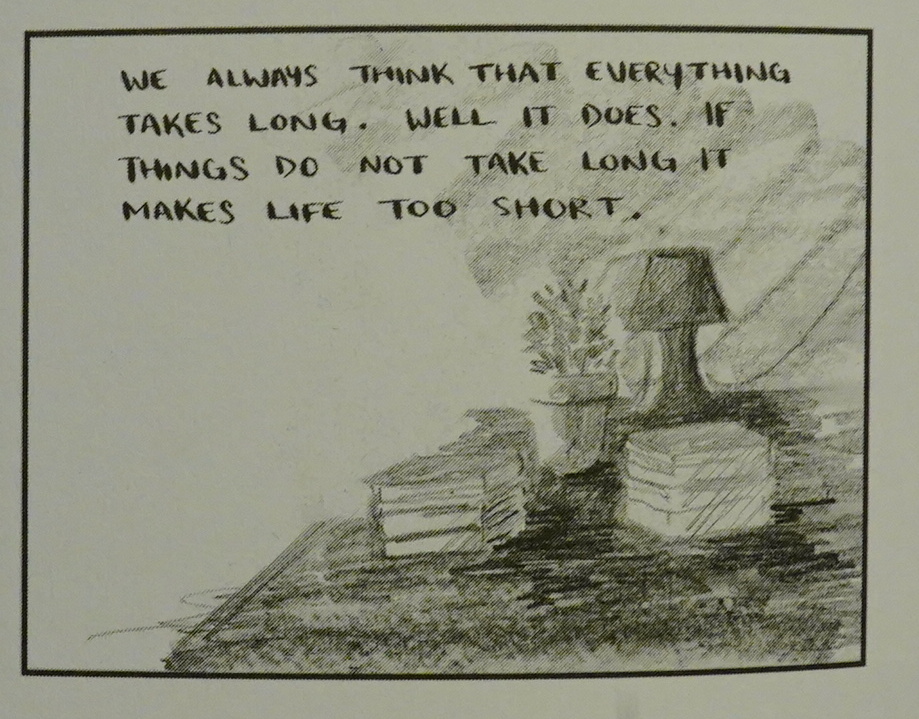 WE ALWAYS THINK THAT EVERYTHING
TAKES LONG. WELL IT DOES. IF
THINGS DO NOT TAKE LONG IT
MAKES LIFE TOO SHORT.